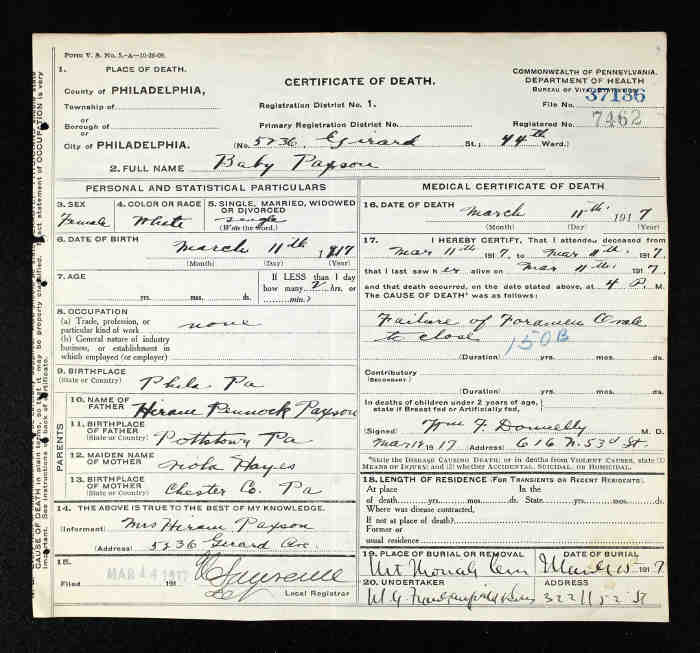 Form V. S. No. 5.-A-10-26-09.
1. PLACE OF DEATH.
County of PHILADELPHIA,
Township of
or
Borough of
or
City of PHILADELPHIA.
CERTIFICATE OF DEATH.
Registration District No. 1.
Primary Registration District No.
(No. 5236 Girard St.; 44th Ward.)
COMMONWEALTH OF PENNSYLVANIA.
DEPARTMENT OF HEALTH
BUREAU OF VITAL STATISTICS
File No. 37136
Registered No. 7462
2. FULL NAME Baby Paxson
PERSONAL AND STATISTICAL PARTICULARS
3. SEX
Female
4. COLOR OR RACE
White
5. SINGLE, MARRIED, WIDOWED
OR DIVORCED
single
(Write the word.)
6. DATE OF BIRTH
March 11th 1917
(Month) (Day) (Year)
7. AGE
yrs. mos. ds.
If LESS than 1 day
how many 2 hrs. or
min.?
8. OCCUPATION
(a) Trade, profession, or
particular kind of work
none
(b) General nature of industry
business, or establishment in
which employed (or employer)
9. BIRTHPLACE
(State or Country)
Phila. Pa
PARENTS
10. NAME OF
FATHER
Hiram Pennock Paxson
11. BIRTHPLACE
OF FATHER
(State or Country)
Pottstown Pa
12. MAIDEN NAME
OF MOTHER
Hayes
13. BIRTHPLACE
OF MOTHER
(State or Country)
Chester Co. Pa
14. THE ABOVE IS TRUE TO THE BEST OF MY KNOWLEDGE.
(Informant) Mrs Hiram Paxson
(Address) 5236 Gerard Ave.
15.
Filed MAR 14 1917 191
Local Registrar
MEDICAL CERTIFICATE OF DEATH
16. DATE OF DEATH
March 11th. 1917
(Month) (Day) (Year)
17. I HEREBY CERTIFY, That I attended deceased from
Mar 11th 1917, to Mar 11th. 1917,
that I last saw her alive on Mar 11th. 1917,
and that death occurred, on the date stated above, at 4 P. M.
The CAUSE OF DEATH* was as follows:
Failure of Foramen Ovale
to close
150B
(Duration) yrs. mos. ds.
Contributory
(Secondary.)
(Duration) yrs. mos. ds.
In deaths of children under 2 years of age,
state if Breast fed or Artificially fed,
(Signed) Wm F. Donnelly M. D.
1917 Address: 616 N. 53d St.
*State the DISEASE CAUSING DEATH; or in deaths from VIOLENT CAUSES, state (1)
MEANS OF INJURY; and (2) whether ACCIDENTAL, SUICIDAL, OR HOMICIDAL.
18. LENGTH OF RESIDENCE (FOR TRANSIENTS OR RECENT RESIDENTS).
At place In the
of death yrs. mos. ds. State yrs. mos. ds.
Where was disease contracted,
If not at place of death?
Former or
usual residence
19. PLACE OF BURIAL OR REMOVAL
Mt Moriah Cem
DATE OF BURIAL
March 15 1917
20. UNDERTAKER
ADDRESS